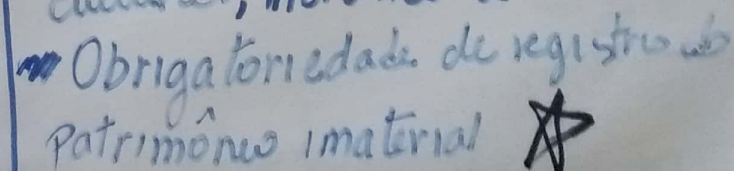 Obrigatoriedade de registro do
Patrimônio imaterial